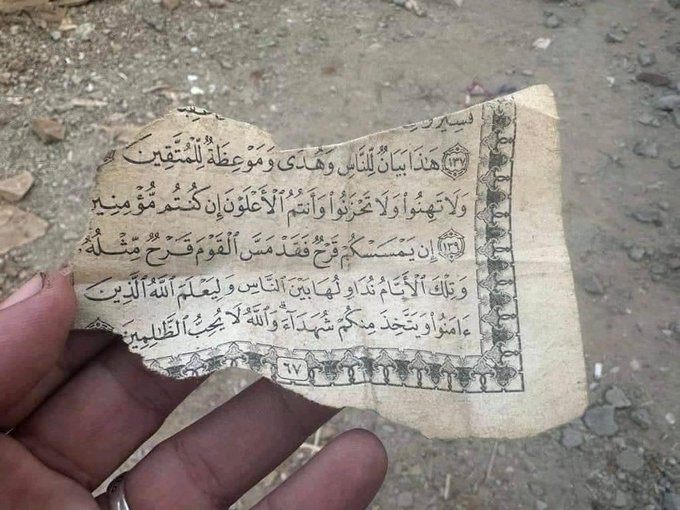 فَسِيرُوا۟
١٣٧ هَٰذَا بَيَانٌ لِّلنَّاسِ وَهُدًى وَمَوْعِظَةٌ لِّلْمُتَّقِينَ
وَلَا تَهِنُوا۟ وَلَا تَحْزَنُوا۟ وَأَنتُمُ ٱلْأَعْلَوْنَ إِن كُنتُم مُّؤْمِنِينَ
١٣٩ إِن يَمْسَسْكُمْ قَرْحٌ فَقَدْ مَسَّ ٱلْقَوْمَ قَرْحٌ مِّثْلُهُۥ
وَتِلْكَ ٱلْأَيَّامُ نُدَاوِلُهَا بَيْنَ ٱلنَّاسِ وَلِيَعْلَمَ ٱللَّهُ ٱلَّذِينَ
ءَامَنُوا۟ وَيَتَّخِذَ مِنكُمْ شُهَدَآءَ ۗ وَٱللَّهُ لَا يُحِبُّ ٱلظَّٰلِمِينَ
٦٧